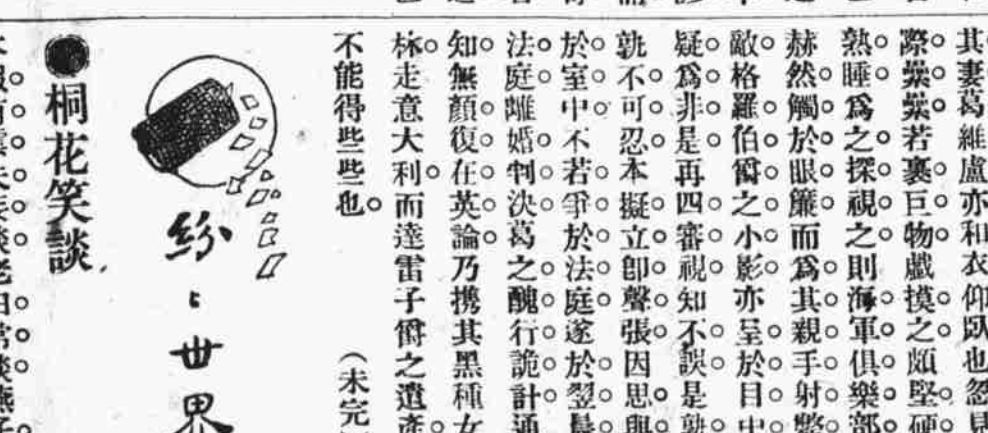 其妻葛維盧亦和衣仰臥也忽見
際纍纍若裹巨物戲摸之頗堅硬
熟睡爲之探視之則海軍俱樂部
赫然觸於眼簾而爲其親手射斃
敵格羅伯爵之小影亦呈於目中
疑爲非是再四審視知不誤是孰
孰不可忍本擬立卽聲張因思與
於室中不若爭於法庭遂於翌晨
法庭離婚判決葛之醜行詭計通
知無顏復在英論乃携其黑種女
林走意大利而達雷子爵之遺產
不能得些些也。（未完
紛紛世界
●桐花笑談